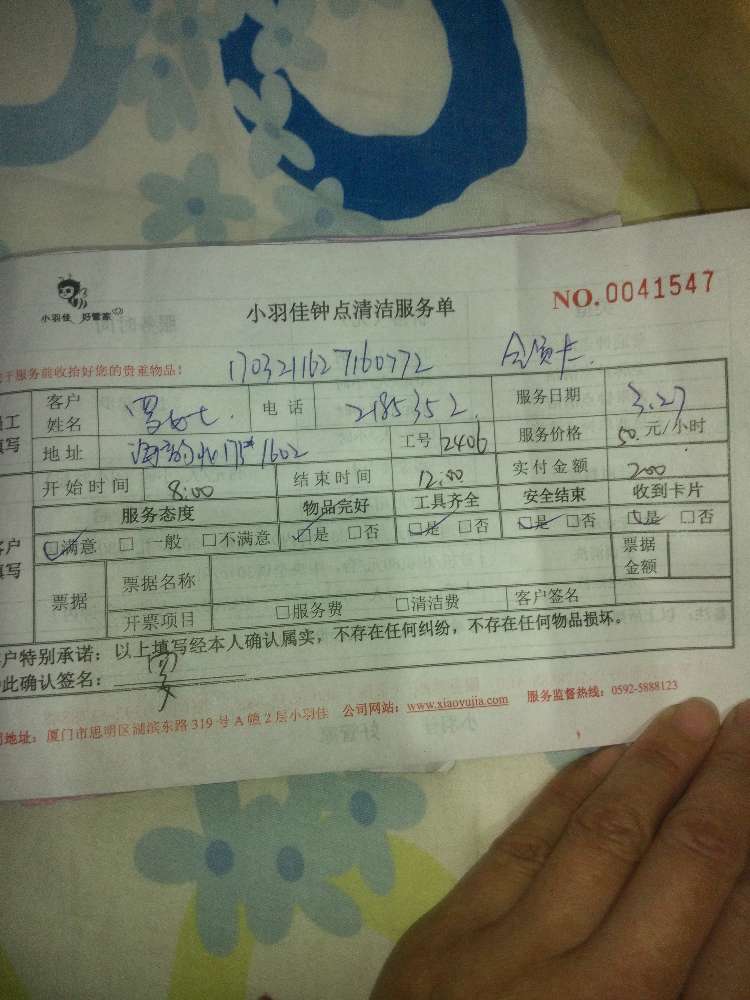 小羽佳 好管家
小羽佳钟点清洁服务单
NO.0041547
于服务前收拾好您的贵重物品！
1703211627160772 会员卡
客户姓名 女士 电话 2185352 服务日期 3.27
地址 1602 工号 2406 服务价格 50 元/小时
开始时间 8:00 结束时间 12:00 实付金额 200
服务态度 物品完好 工具齐全 安全结束 收到卡片
☑满意 □一般 □不满意 ☑是 □否 ☑是 □否 ☑是 □否 ☑是 □否
票据 票据名称 票据金额
开票项目 □服务费 □清洁费 客户签名
户特别承诺：以上填写经本人确认属实，不存在任何纠纷，不存在任何物品损坏。
此确认签名：
地址：厦门市思明区湖滨东路319号A幢2层小羽佳 公司网站：www.xiaoyujia.com 服务监督热线：0592-5888123